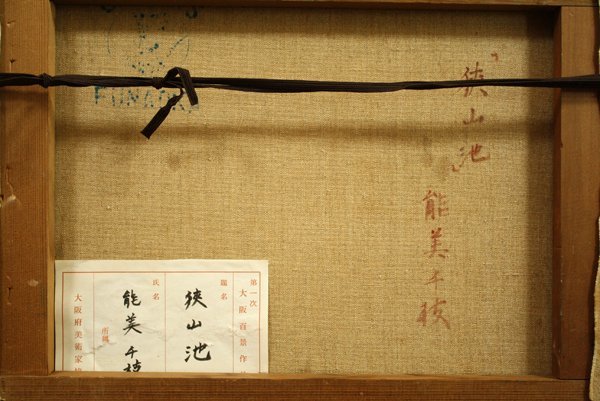 「狭山池」
能美千枝
第一次 大阪百景作
題名
狭山池
氏名
能美千枝
所属
大阪府美術家協
FUNAOKA